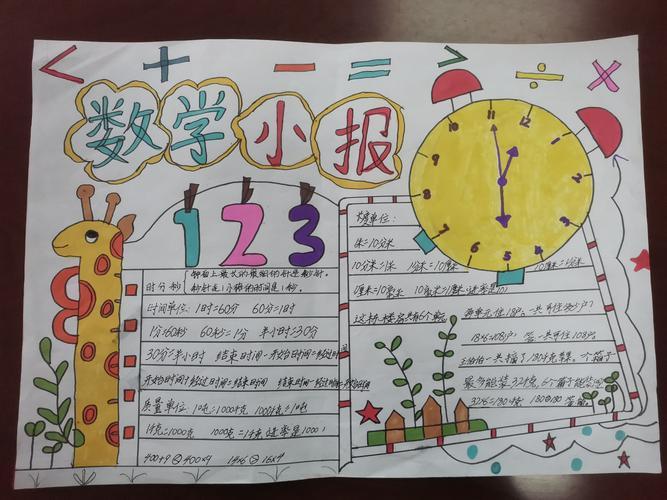 < + - = > ÷ ×
数学小报
123
钟面上最长的最细的针是秒针。
时分秒：秒针走1小格的时间是1秒。
时间单位：1时=60分 60分=1时
1分=60秒 60秒=1分 半小时=30分
30分=半小时 结束时间-开始时间=经过时间
开始时间+经过时间=结束时间 结束时间-经过时间=开始时间
质量单位：1吨=1000千克 1000千克=1吨
1千克=1000克 1000克=1千克 进率是1000
400+9 400×9 14×6 16×4
12 1 2 3 4 5 6 7 8 9 10 11
长度单位：
1米=10分米
10分米=1米 1分米=10厘米 10厘米=1分米
1厘米=10毫米 10毫米=1厘米 进率是10
这栋楼房共有6个单元
每单元住18户，一共可住多少户？
18×6=108(户) 答：一共可住108户。
一共摘了180千克 一个箱子
最多能装32千克，6个箱子能装
32×6≈180千克 180=180 答：能